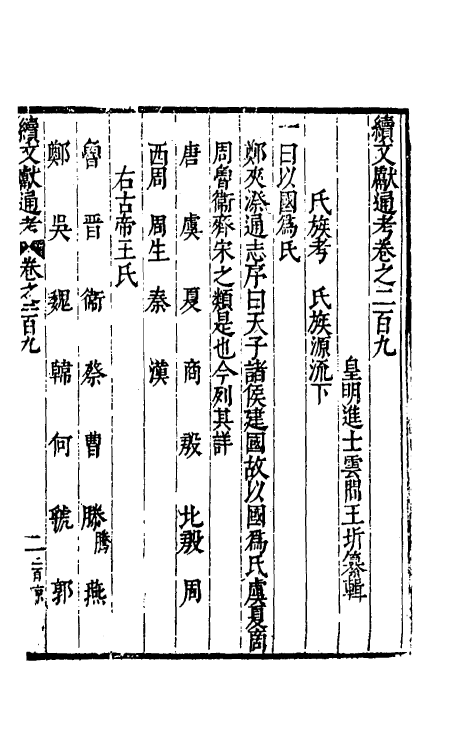 續文獻通考卷之二百九
皇明進士雲間王圻纂輯
氏族考　氏族源流下
一曰以國爲氏
鄭夾漈通志序曰天子諸侯建國故以國爲氏虞夏商
周魯衛齊宋之類是也今列其詳
唐　虞　夏　商　殷　北殷　周
西周　周生　秦　漢
右古帝王氏
魯　晉　衞　蔡　曹　滕　騰　燕
鄭　吳　魏　韓　何　虢　郭
續文獻通考　卷之二百九　二